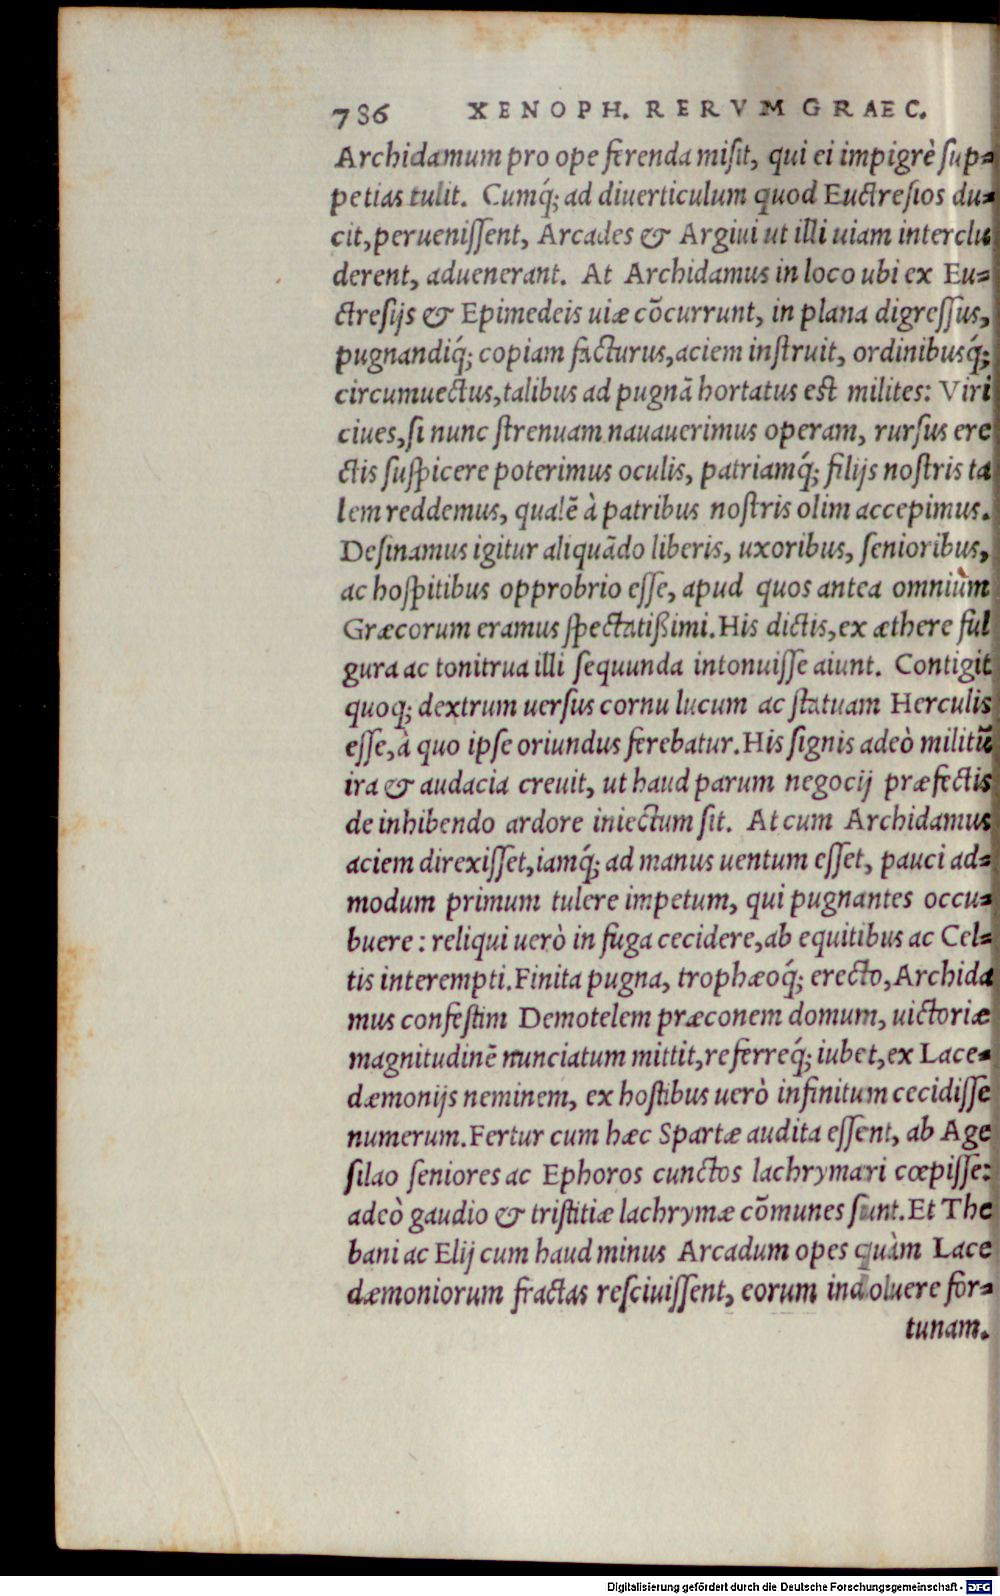 786 XENOPH. RERVM GRAEC.
Archidamum pro ope ferenda misit, qui ei impigrè sup-
petias tulit. Cumq́; ad diuerticulum quod Euctresios du-
cit, peruenissent, Arcades & Argiui ut illi uiam interclu
derent, aduenerant. At Archidamus in loco ubi ex Eu-
ctresijs & Epimedeis uiæ cõcurrunt, in plana digressus,
pugnandiq́; copiam facturus, aciem instruit, ordinibusq́;
circumuectus, talibus ad pugnã hortatus est milites: Viri
ciues, si nunc strenuam nauauerimus operam, rursus ere
ctis suspicere poterimus oculis, patriamq́; filijs nostris ta
lem reddemus, qualẽ à patribus nostris olim accepimus.
Desinamus igitur aliquãdo liberis, uxoribus, senioribus,
ac hospitibus opprobrio esse, apud quos antea omnium
Græcorum eramus spectatißimi. His dictis, ex æthere ful
gura ac tonitrua illi sequunda intonuisse aiunt. Contigit
quoq; dextrum uersus cornu lucum ac statuam Herculis
esse, à quo ipse oriundus ferebatur. His signis adeò militũ
ira & audacia creuit, ut haud parum negocij præfectis
de inhibendo ardore iniectum sit. At cum Archidamus
aciem direxisset, iamq́; ad manus uentum esset, pauci ad-
modum primum tulere impetum, qui pugnantes occu-
buere: reliqui uerò in fuga cecidere, ab equitibus ac Cel-
tis interempti. Finita pugna, trophæoq́; erecto, Archida
mus confestim Demotelem præconem domum, uictoriæ
magnitudinẽ nunciatum mittit, referreq́; iubet, ex Lace-
dæmonijs neminem, ex hostibus uerò infinitum cecidisse
numerum. Fertur cum hæc Spartæ audita essent, ab Age
silao seniores ac Ephoros cunctos lachrymari cœpisse:
adeò gaudio & tristitiæ lachrymæ cõmunes sunt. Et The
bani ac Elij cum haud minus Arcadum opes quàm Lace
dæmoniorum fractas resciuissent, eorum indoluere for-
tunam.
Digitalisierung gefördert durch die Deutsche Forschungsgemeinschaft - DFG